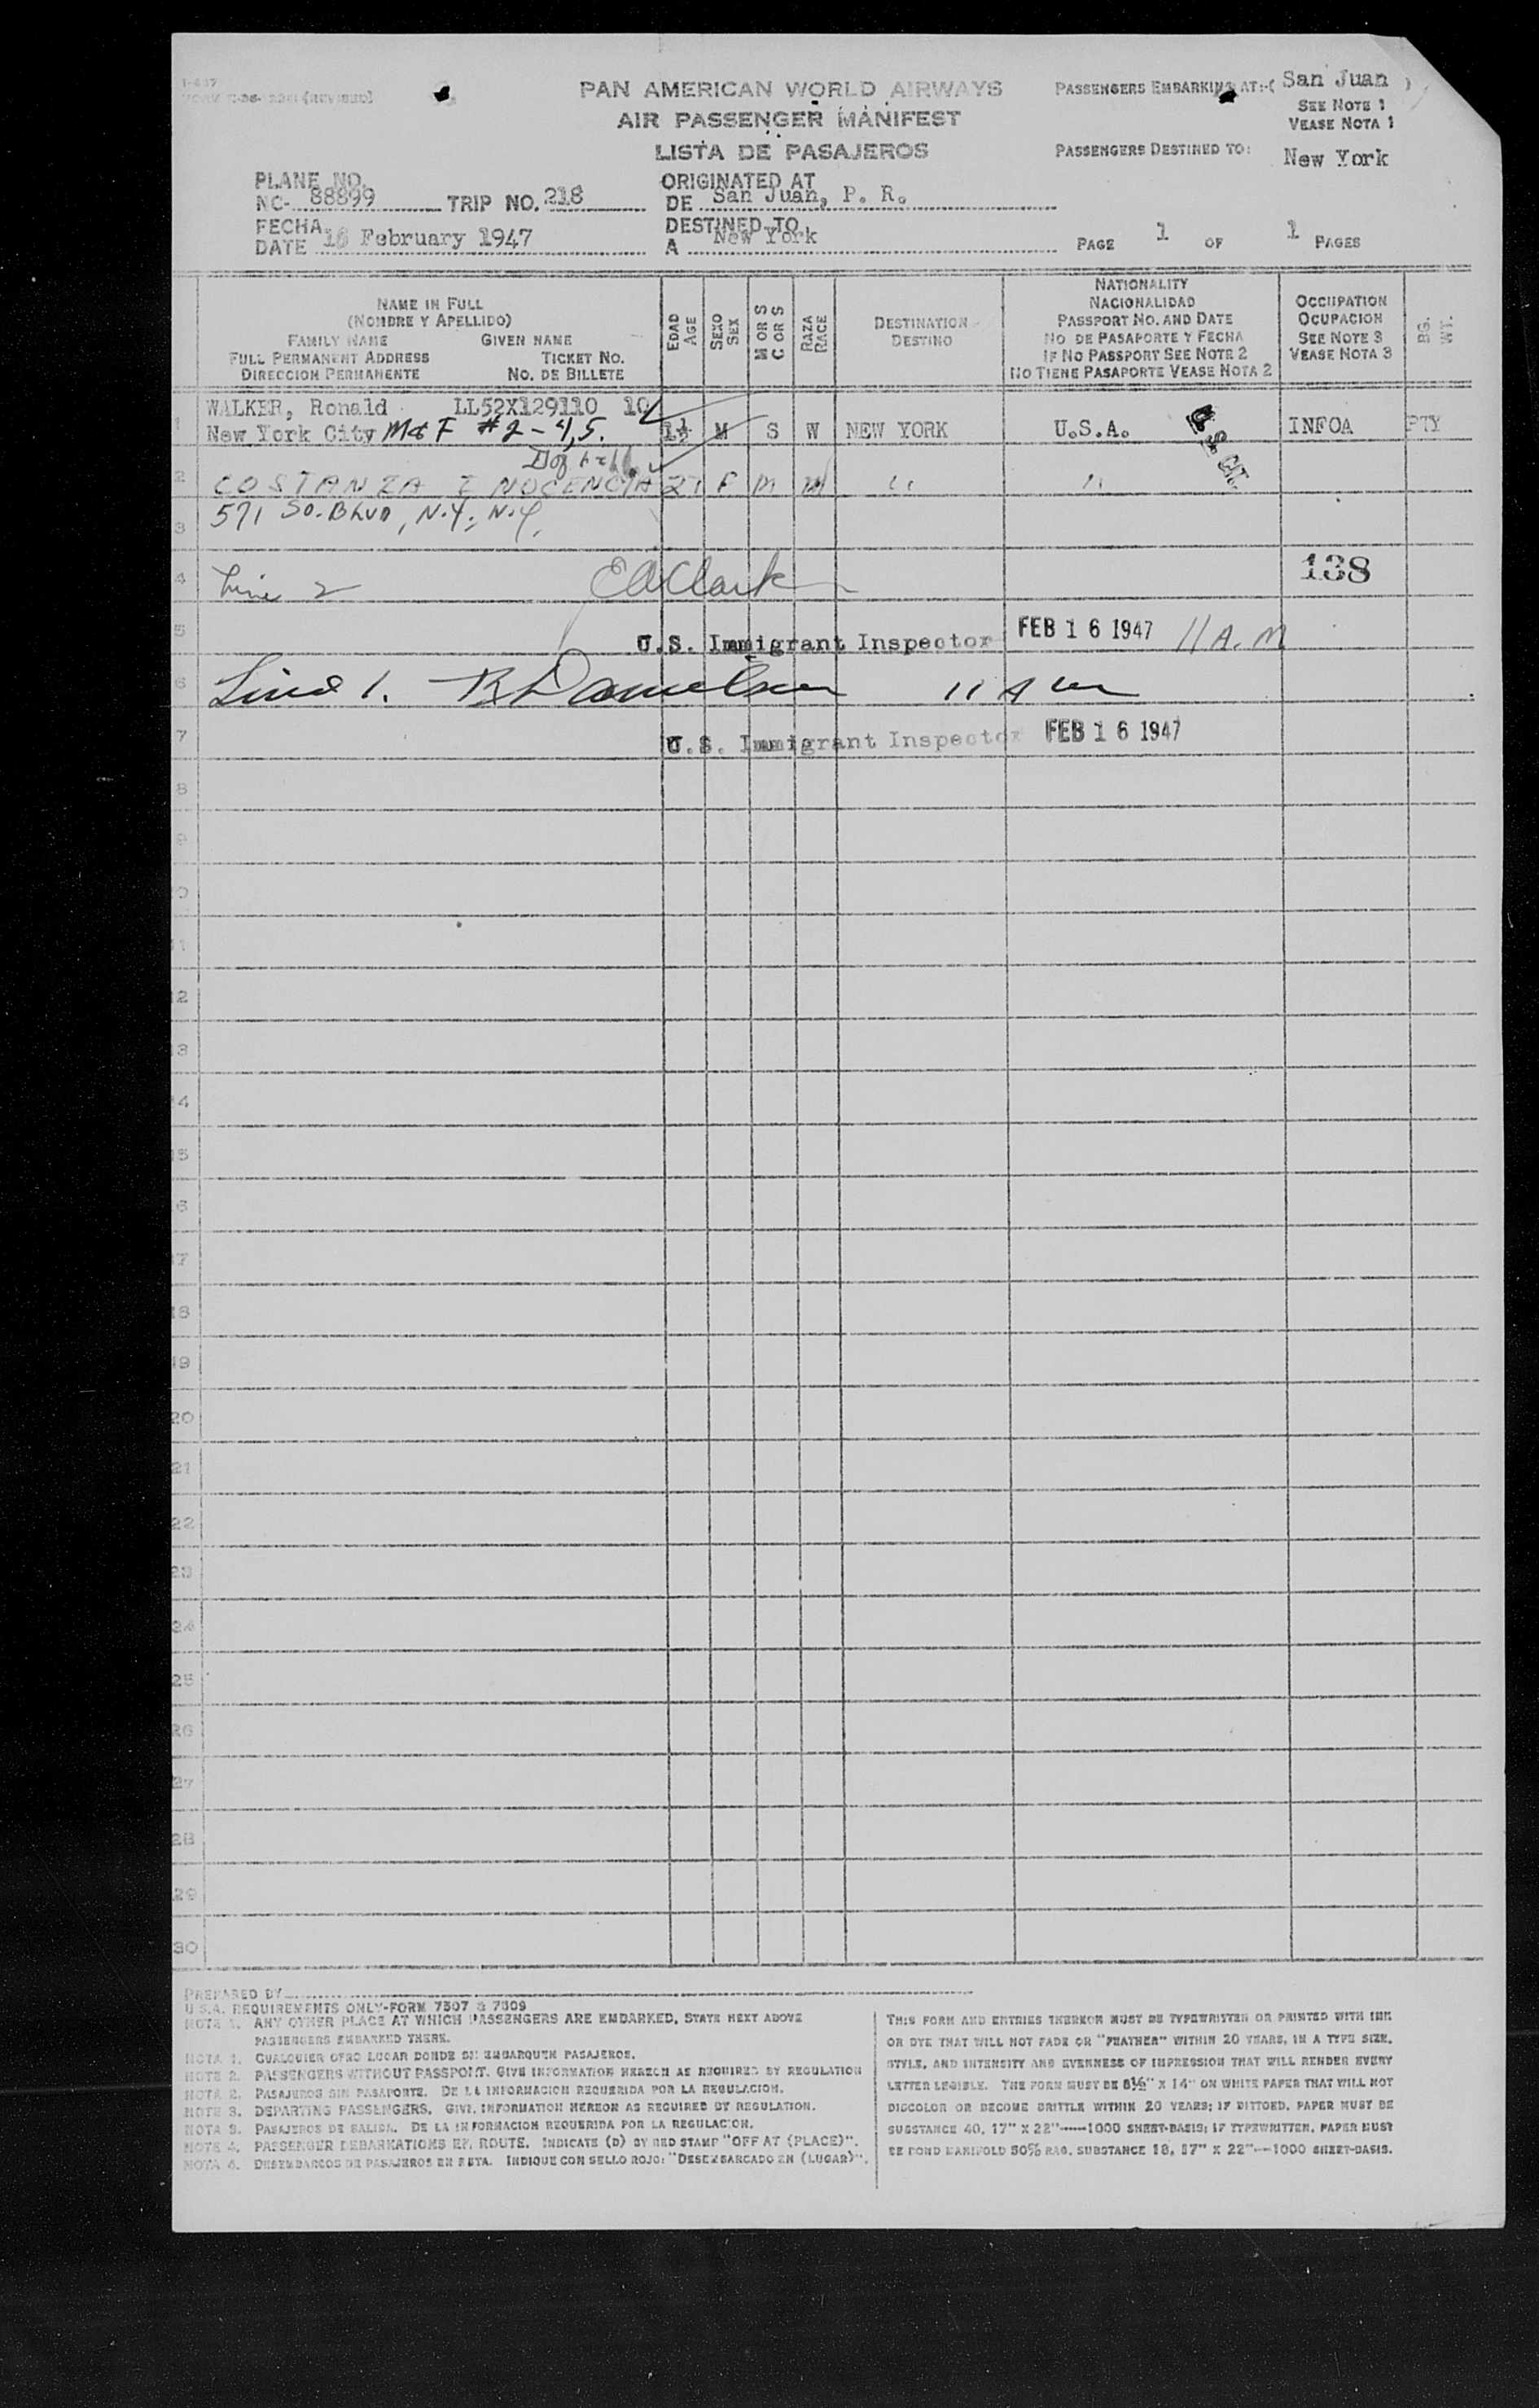 PAN AMERICAN WORLD AIRWAYS
AIR PASSENGER MANIFEST
LISTA DE PASAJEROS
PASSENGERS EMBARKING AT:-( San Juan )
SEE NOTE 1
VEASE NOTA 1
PASSENGERS DESTINED TO: New York
PLANE NO.
NC- 88899 TRIP NO. 218
ORIGINATED AT
DE San Juan, P. R.
FECHA
DATE 16 February 1947
DESTINED TO
A New York
PAGE 1 OF 1 PAGES
NAME IN FULL
(NOMBRE Y APELLIDO)
FAMILY NAME GIVEN NAME
FULL PERMANENT ADDRESS TICKET NO.
DIRECCION PERMANENTE NO. DE BILLETE
EDAD
AGE
SEXO
SEX
M OR S
C OR S
RAZA
RACE
DESTINATION
DESTINO
NATIONALITY
NACIONALIDAD
PASSPORT NO. AND DATE
NO DE PASAPORTE Y FECHA
IF NO PASSPORT SEE NOTE 2
NO TIENE PASAPORTE VEASE NOTA 2
OCCUPATION
OCUPACION
SEE NOTE 3
VEASE NOTA 3
BG.
WT.
1 WALKER, Ronald LL52X129110 10
New York City M & F #2-4,5. 1½ M S W NEW YORK U.S.A. INFOA PTY
2 COSTANZA INOCENCIA 27 F M W " "
3 571 SO. BLVD, N.Y., N.Y.
138
4 Line 2 E A Clark
5 U.S. Immigrant Inspector FEB 16 1947 11 A.M
6 Line 1. R Danielson 11 A m
7 U.S. Immigrant Inspector FEB 16 1947
8
9
10
11
12
13
14
15
16
17
18
19
20
21
22
23
24
25
26
27
28
29
30
PREPARED BY
U.S.A. REQUIREMENTS ONLY-FORM 7507 & 7509
NOTE 1. ANY OTHER PLACE AT WHICH PASSENGERS ARE EMBARKED, STATE NEXT ABOVE
PASSENGERS EMBARKED THERE.
NOTA 1. CUALQUIER OTRO LUGAR DONDE SE EMBARQUEN PASAJEROS.
NOTE 2. PASSENGERS WITHOUT PASSPORT. GIVE INFORMATION HEREON AS REQUIRED BY REGULATION
NOTA 2. PASAJEROS SIN PASAPORTE. DE LA INFORMACION REQUERIDA POR LA REGULACION.
NOTE 3. DEPARTING PASSENGERS. GIVE INFORMATION HEREON AS REQUIRED BY REGULATION.
NOTA 3. PASAJEROS DE SALIDA. DE LA INFORMACION REQUERIDA POR LA REGULACION.
NOTE 4. PASSENGER DEBARKATIONS EN ROUTE. INDICATE (D) BY RED STAMP "OFF AT (PLACE)".
NOTA 4. DESEMBARCOS DE PASAJEROS EN RUTA. INDIQUE CON SELLO ROJO: "DESEMBARCADO EN (LUGAR)".
THIS FORM AND ENTRIES THEREON MUST BE TYPEWRITTEN OR PRINTED WITH INK
OR DYE THAT WILL NOT FADE OR "FEATHER" WITHIN 20 YEARS, IN A TYPE SIZE,
STYLE, AND INTENSITY AND EVENNESS OF IMPRESSION THAT WILL RENDER EVERY
LETTER LEGIBLE. THE FORM MUST BE 8½" X 14" ON WHITE PAPER THAT WILL NOT
DISCOLOR OR BECOME BRITTLE WITHIN 20 YEARS; IF DITTOED, PAPER MUST BE
SUBSTANCE 40, 17" X 22"-----1000 SHEET-BASIS; IF TYPEWRITTEN, PAPER MUST
BE BOND MANIFOLD 50% RAG, SUBSTANCE 18, 17" X 22"---1000 SHEET-BASIS.